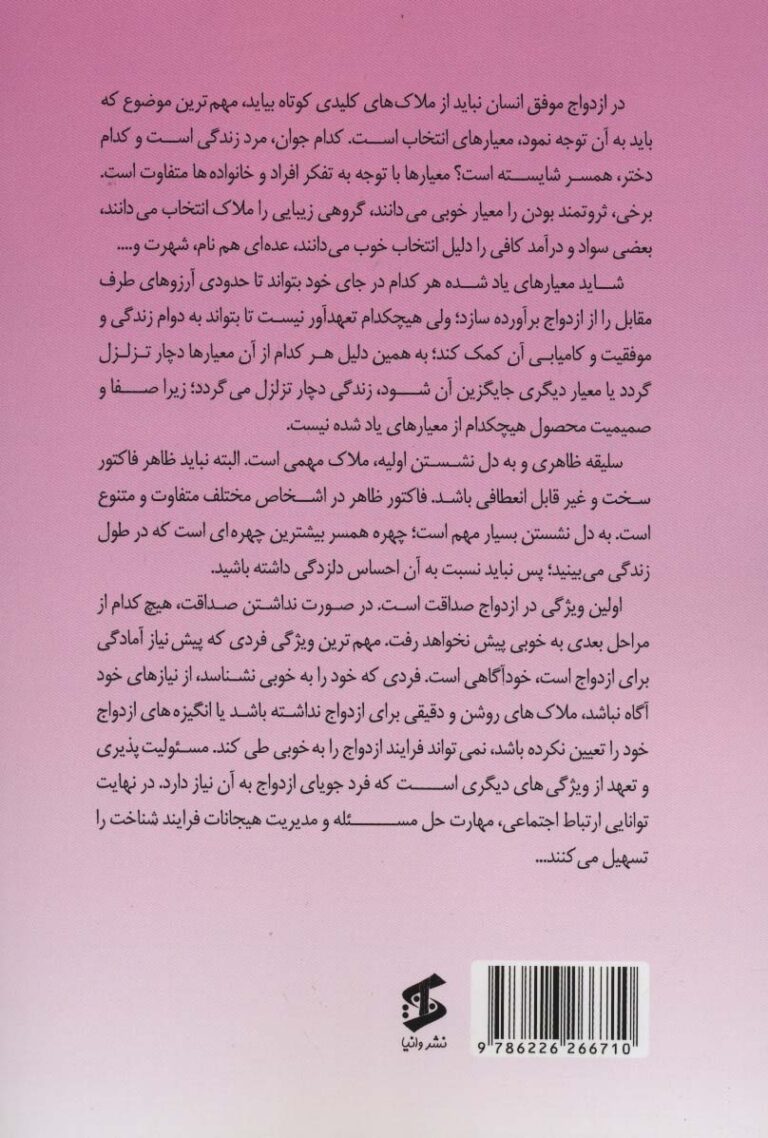 در ازدواج موفق انسان نباید از ملاک‌های کلیدی کوتاه بیاید، مهم‌ترین موضوع که
باید به آن توجه نمود، معیارهای انتخاب است. کدام جوان، مرد زندگی است و کدام
دختر، همسر شایسته است؟ معیارها با توجه به تفکر افراد و خانواده‌ها متفاوت است.
برخی، ثروتمند بودن را معیار خوبی می‌دانند، گروهی زیبایی را ملاک انتخاب می‌دانند،
بعضی سواد و درآمد کافی را دلیل انتخاب خوب می‌دانند، عده‌ای هم نام، شهرت و....
شاید معیارهای یاد شده هر کدام در جای خود بتواند تا حدودی آرزوهای طرف
مقابل را از ازدواج برآورده سازد؛ ولی هیچکدام تعهدآور نیست تا بتواند به دوام زندگی و
موفقیت و کامیابی آن کمک کند؛ به همین دلیل هر کدام از آن معیارها دچار تزلزل
گردد یا معیار دیگری جایگزین آن شود، زندگی دچار تزلزل می‌گردد؛ زیرا صفا و
صمیمیت محصول هیچکدام از معیارهای یاد شده نیست.
سلیقه ظاهری و به دل نشستن اولیه، ملاک مهمی است. البته نباید ظاهر فاکتور
سخت و غیر قابل انعطافی باشد. فاکتور ظاهر در اشخاص مختلف متفاوت و متنوع
است. به دل نشستن بسیار مهم است؛ چهره همسر بیشترین چهره‌ای است که در طول
زندگی می‌بینید؛ پس نباید نسبت به آن احساس دلزدگی داشته باشید.
اولین ویژگی در ازدواج صداقت است. در صورت نداشتن صداقت، هیچ کدام از
مراحل بعدی به خوبی پیش نخواهد رفت. مهم‌ترین ویژگی فردی که پیش‌نیاز آمادگی
برای ازدواج است، خودآگاهی است. فردی که خود را به خوبی نشناسد، از نیازهای خود
آگاه نباشد، ملاک‌های روشن و دقیقی برای ازدواج نداشته باشد یا انگیزه‌های ازدواج
خود را تعیین نکرده باشد، نمی‌تواند فرایند ازدواج را به‌خوبی طی کند. مسئولیت‌پذیری
و تعهد از ویژگی‌های دیگری است که فرد جویای ازدواج به آن نیاز دارد. در نهایت
توانایی ارتباط اجتماعی، مهارت حل مسئله و مدیریت هیجانات فرایند شناخت را
تسهیل می‌کنند...
نشر وانیا
9 786226 266710